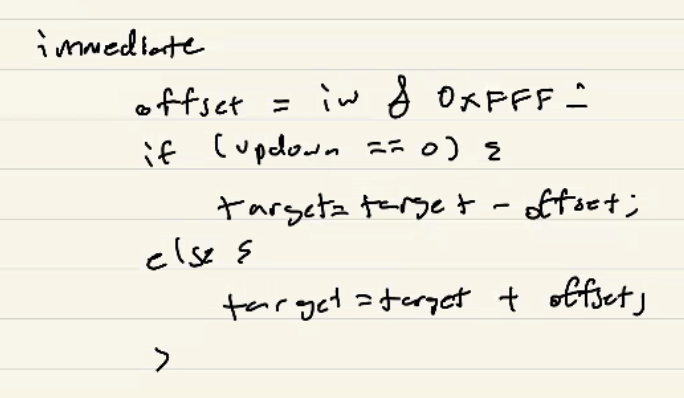 immediate
offset = iw & 0xFFF;
if (updown == 0) {
target = target - offset;
else {
target = target + offset;
}